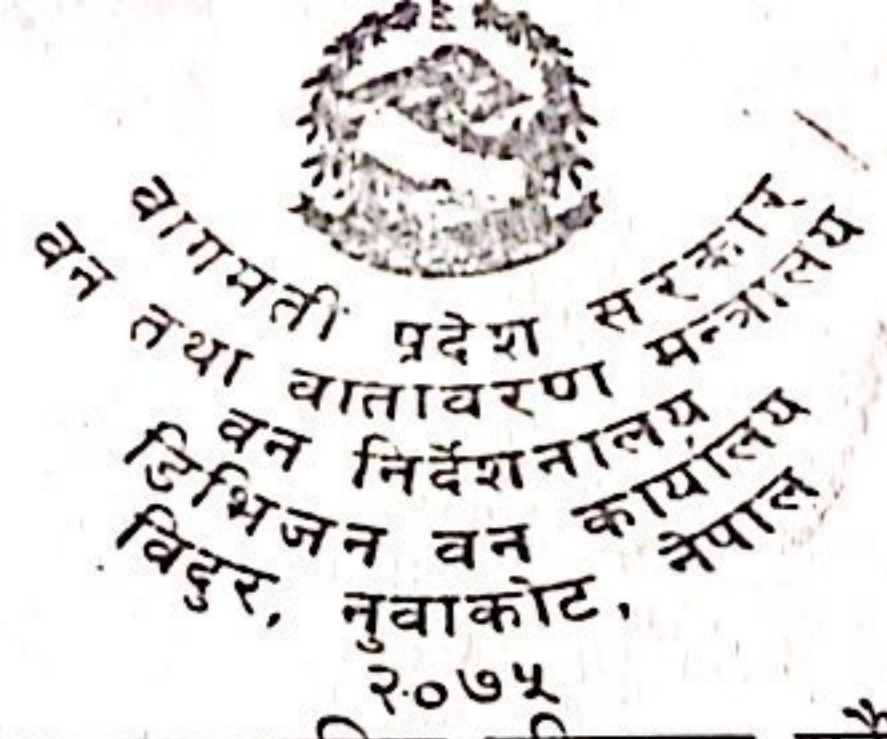 वागमती प्रदेश सरकार
वन तथा वातावरण मन्त्रालय
वन निर्देशनालय
डिभिजन वन कार्यालय
विदुर, नुवाकोट, नेपाल
२०७५